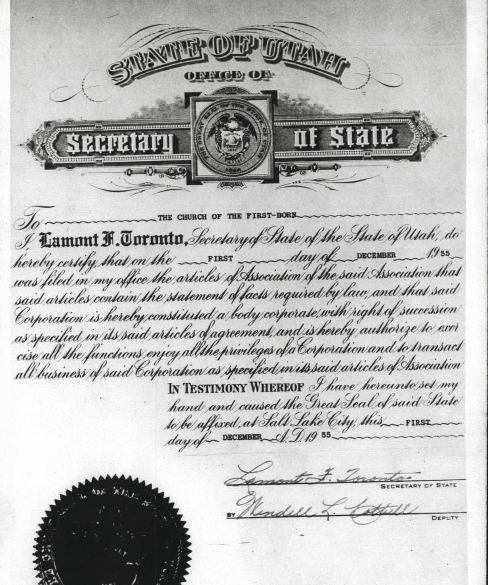 STATE OF UTAH
OFFICE OF
Secretary of State
To THE CHURCH OF THE FIRST-BORN
I Lamont F. Toronto, Secretary of State of the State of Utah, do
hereby certify, that on the FIRST day of DECEMBER 1955
was filed in my office the articles of Association of the said Association that
said articles contain the statement of facts required by law, and that said
Corporation is hereby constituted a body corporate, with right of succession
as specified in its said articles of agreement, and is hereby authorize to exer
cise all the functions, enjoy all the privileges of a Corporation and to transact
all business of said Corporation as specified in its said articles of Association
IN TESTIMONY WHEREOF I have hereunto set my
hand and caused the Great Seal of said State
to be affixed, at Salt Lake City, this FIRST
day of DECEMBER A.D. 19 55
Lamont F. Toronto
SECRETARY OF STATE
BY Wendell L. Cottrell
DEPUTY